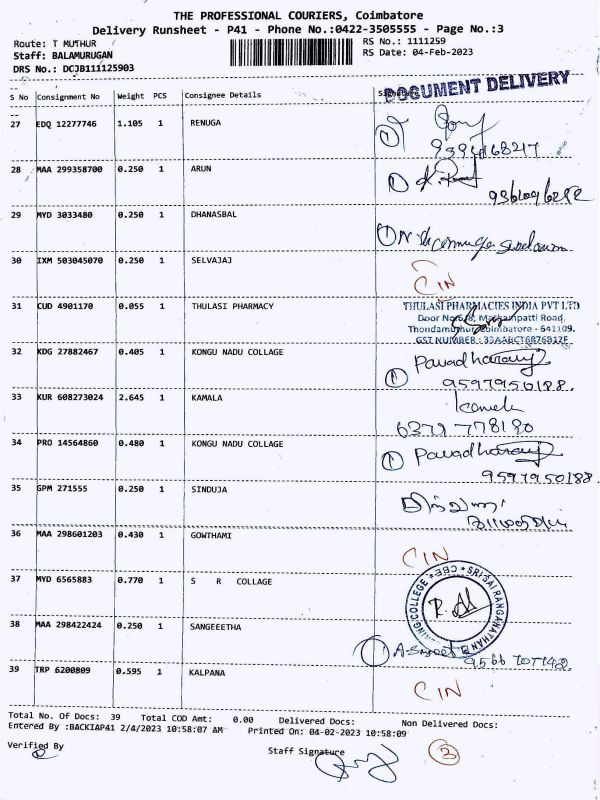 THE PROFESSIONAL COURIERS, Coimbatore
Delivery Runsheet - P41 - Phone No.:0422-3505555 - Page No.:3
Route: T MUTHUR
RS No.: 1111259
Staff: BALAMURUGAN
RS Date: 04-Feb-2023
DRS No.: DCJB111125903
DOCUMENT DELIVERY
S No Consignment No Weight PCS Consignee Details
27 EDQ 12277746 1.105 1 RENUGA
28 MAA 299358700 0.250 1 ARUN
29 MYD 3033480 0.250 1 DHANASBAL
30 IXM 503045070 0.250 1 SELVAJAJ
CIN
31 CUD 4901170 0.055 1 THULASI PHARMACY
THULASI PHARMACIES INDIA PVT LTD
Door No:5/8, Mathampatti Road,
Thondamuthur, Coimbatore - 641109.
GST NUMBER :
32 KDG 27882467 0.405 1 KONGU NADU COLLAGE
9597950188
33 KUR 608273024 2.645 1 KAMALA
6379 778180
34 PRO 14564860 0.480 1 KONGU NADU COLLAGE
9597950188
35 GPM 271555 0.250 1 SINDUJA
36 MAA 298601203 0.430 1 GOWTHAMI
CIN
37 MYD 6565883 0.770 1 S R COLLAGE
38 MAA 298422424 0.250 1 SANGEEETHA
39 TRP 6200809 0.595 1 KALPANA
CIN
Total No. Of Docs: 39 Total COD Amt: 0.00 Delivered Docs: Non Delivered Docs:
Entered By :BACKIAP41 2/4/2023 10:58:07 AM Printed On: 04-02-2023 10:58:09
Verified By
Staff Signature
3